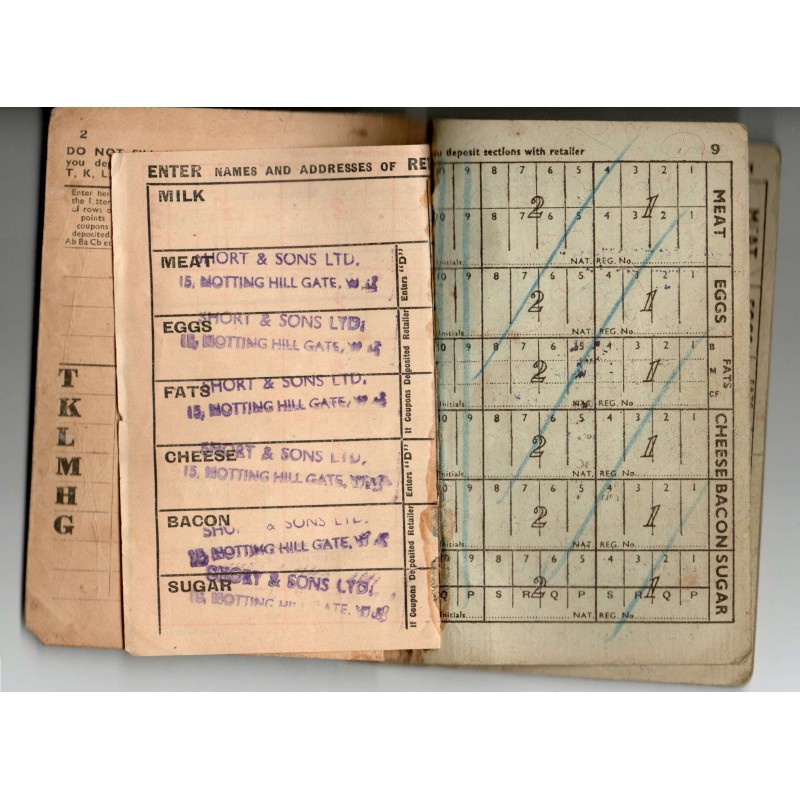 2
DO NOT
you
T, K, L
Enter
the letter
of rows
points
coupons
deposited
Ab Ba Cb
T
K
L
M
H
G
ENTER NAMES AND ADDRESSES OF
MILK
MEAT
SHORT & SONS LTD.
15, NOTTING HILL GATE, W.
EGGS
SHORT & SONS LTD,
15, NOTTING HILL GATE, W.
FATS
SHORT & SONS LTD.
15, NOTTING HILL GATE, W.
CHEESE
SHORT & SONS LTD,
15, NOTTING HILL GATE, W.
BACON
SHORT & SONS LTD.
15 NOTTING HILL GATE, W.
SUGAR
SHORT & SONS LTD,
15, NOTTING HILL GATE, W.
If Coupons Deposited Retailer Enters "D"
If Coupons Deposited Retailer Enters "D"
deposit sections with retailer
9
10 9 8 7 6 5 4 3 2 1
2 1
10 9 8 7 6 5 4 3 2 1
Initials NAT. REG. No.
MEAT
10 9 8 7 6 5 4 3 2 1
2 1
Initials NAT. REG. No.
EGGS
10 9 8 7 6 5 4 3 2 1
2 1
Initials NAT. REG. No.
B
M
CF
FATS
10 9 8 7 6 5 4 3 2 1
2 1
Initials NAT. REG. No.
CHEESE
10 9 8 7 6 5 4 3 2 1
2 1
Initials NAT. REG. No.
BACON
10 9 8 7 6 5 4 3 2 1
2 1
Q P S R Q P S R Q P
Initials NAT. REG. No.
SUGAR
MEAT